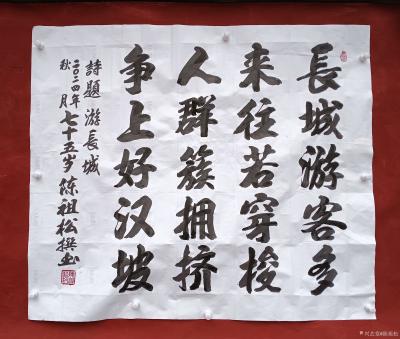 長城游客多
来往若穿梭
人群簇拥挤
争上好汉坡
詩題 游長城
二〇二四年秋月七十五岁陈祖松撰书